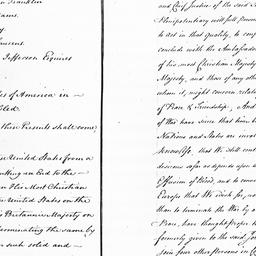 n Franklin
ams.
y
aurens.
Jefferson Esquires
es of America in
iled.
these Presents shall come,
he United States from a
utting an End to the
en His Most Christian
e United States on the
is Britannic Majesty on
terminating the same by
n such solid and
and Chief Justice of the said S
Plenipotentiary with full power
to act in that Quality, to conf
conclude with the Ambassador
of his most Christian Majesty
Majesty, and those of any other
whom it might concern, relati
of Peace & Friendship, And
of War have since that time b
Nations and States are invol
know ye, that We still cont
desirous as far as depends upon u
Effusion of Blood, and to convin
Europe that We wish for
than to terminate the War by a
Peace, have thought proper to
formerly given to the said Jo
Join four other persons in C